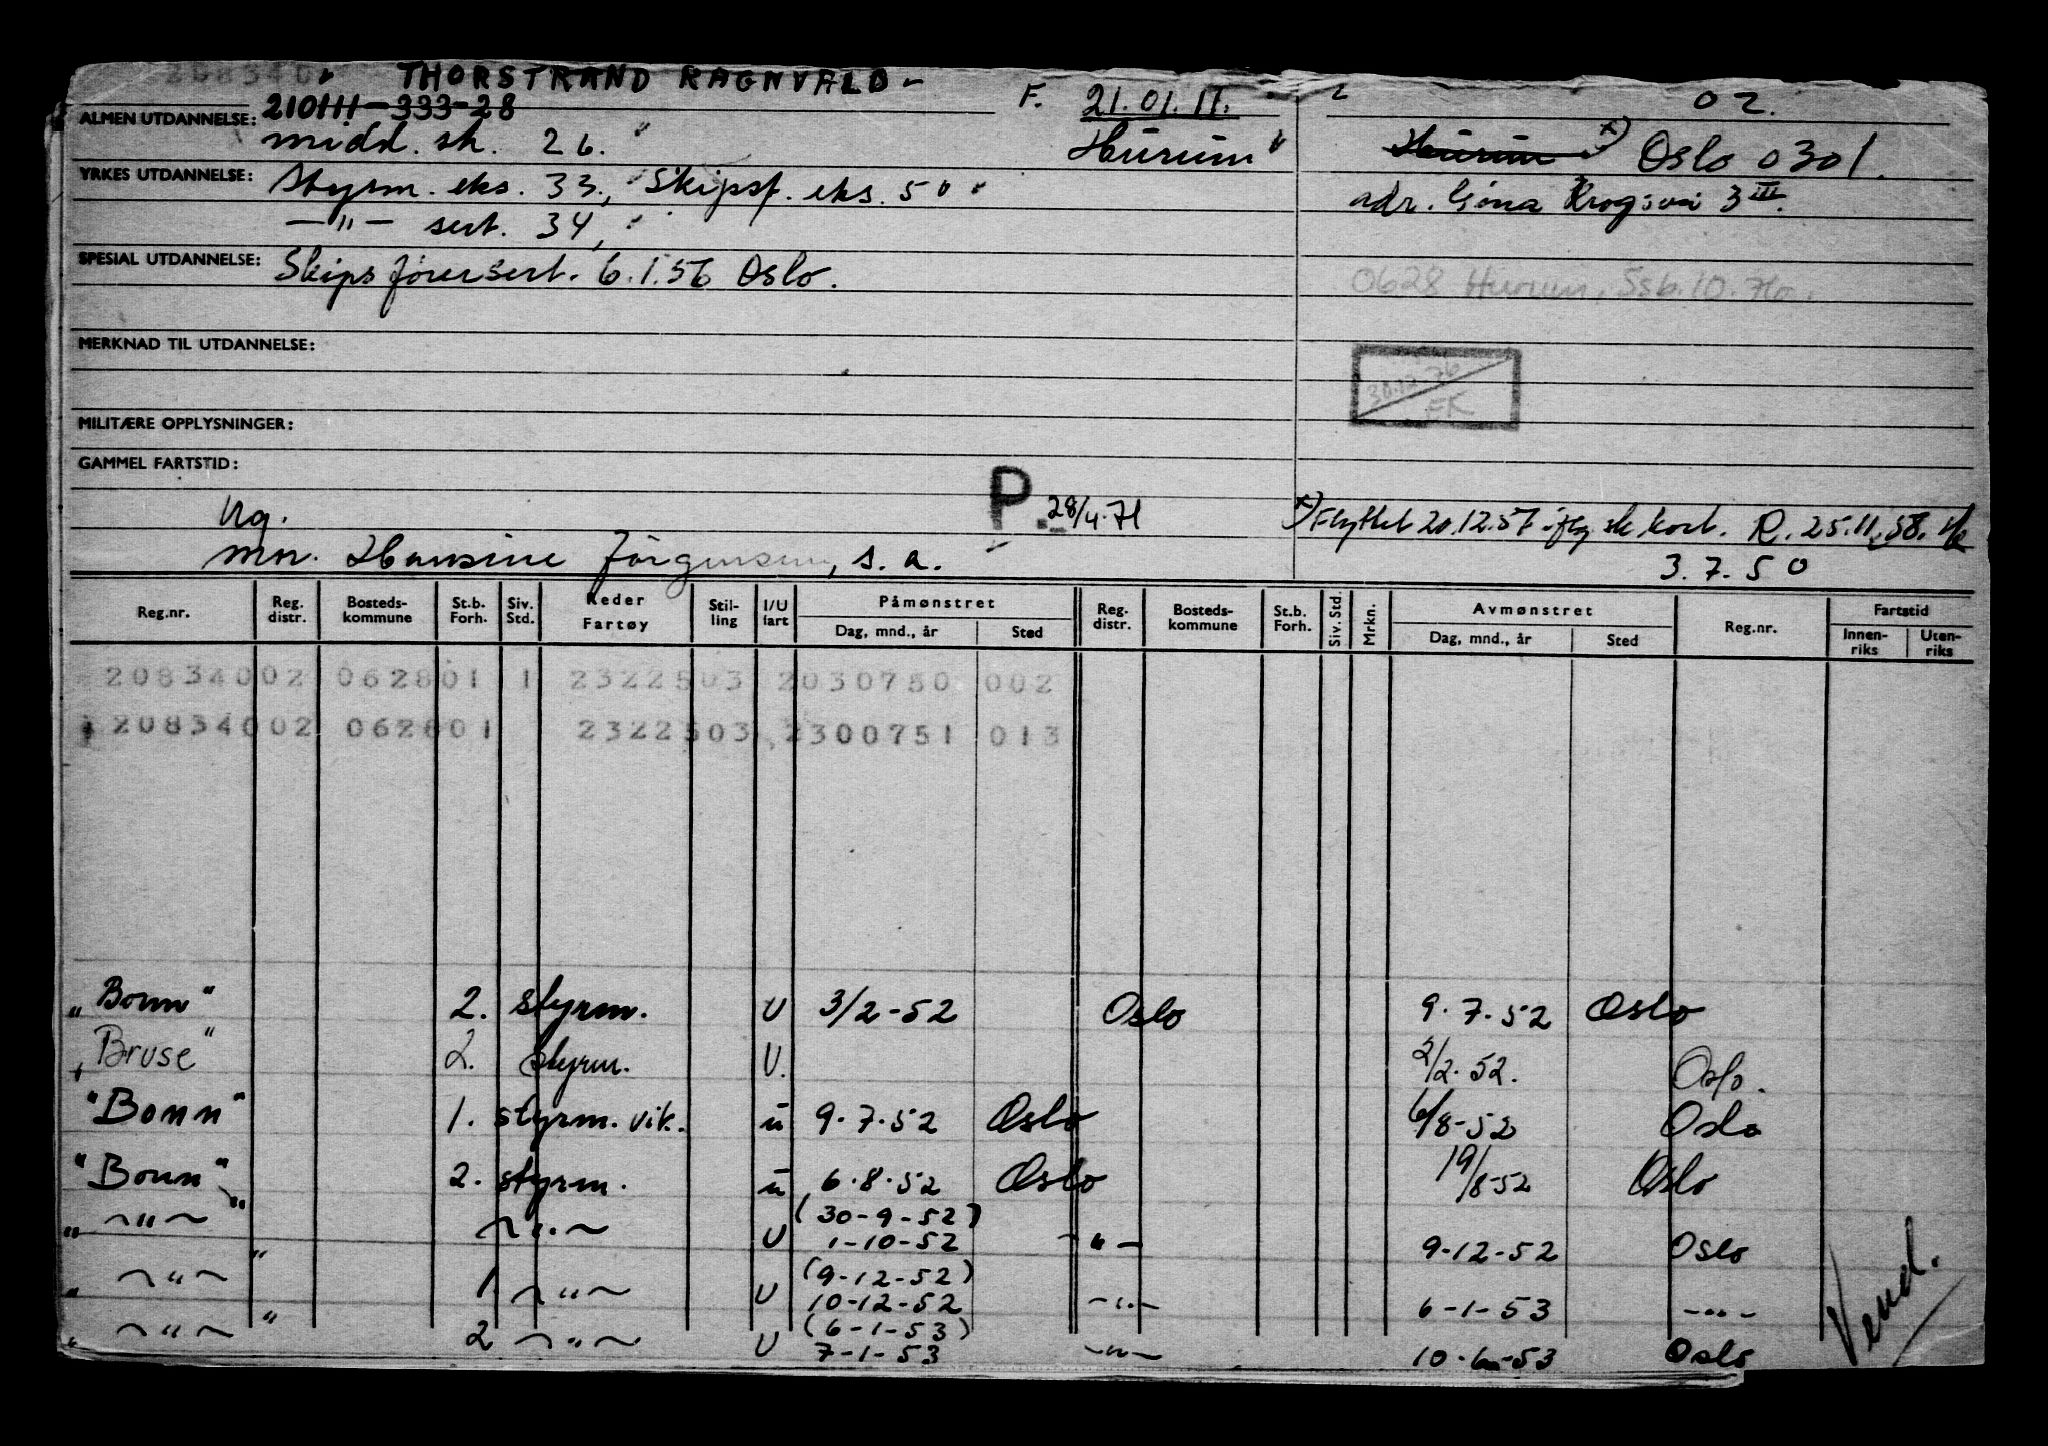 THORSTRAND RAGNVALD
F. 21.01.11.
02.
ALMEN UTDANNELSE: 210111-333-28
midd. sk. 26.
Hurum
Hurum x) Oslo 0301.
YRKES UTDANNELSE: Styrm. eks. 33, Skipsf. eks. 50
adr. Gina Krogsvei 3 III.
—"— sert. 34,
SPESIAL UTDANNELSE: Skipsførersert. 6.1.56 Oslo.
0628 Hurum, Ssb. 10.76.
MERKNAD TIL UTDANNELSE:
30.12.76
EK
MILITÆRE OPPLYSNINGER:
GAMMEL FARTSTID:
P. 28/4.71
Ug.
x) Flyttet 20.12.57 iflg sk. kort. R. 25.11.58.
mor. Hansine Jörgensen, s. a.
3.7.50
Reg.nr. Reg. distr. Bosteds- kommune St.b. Forh. Siv. Std. Reder Fartøy Stil- ling I/U fart Påmønstret Dag, mnd., år Sted Reg. distr. Bosteds- kommune St.b. Forh. Siv. Std. Mrkn. Avmønstret Dag, mnd., år Sted Reg.nr. Fartstid Innen- riks Uten- riks
20834002 062801 1 2322503 2030750 002
20834002 062801 2322503 2300751 013
"Bonn" 2. styrm. U 3/2-52 Oslo 9.7.52 Oslo
"Bruse" 2. styrm. U. 2/2.52. Oslo.
"Bonn" 1. styrm. vik. u 9.7.52 Oslo 6/8-52 Oslo
"Bonn" 2. styrm. u 6.8.52 Oslo 19/8-52 Oslo
" —"— " —"— U (30-9-52) 1-10-52 —"— 9-12-52 Oslo
" —"— " 1. —"— U (9-12-52) 10-12-52 —"— 6-1-53 —"—
" —"— " 2 —"— U (6-1-53) 7-1-53 —"— 10-6-53 Oslo
Vend.